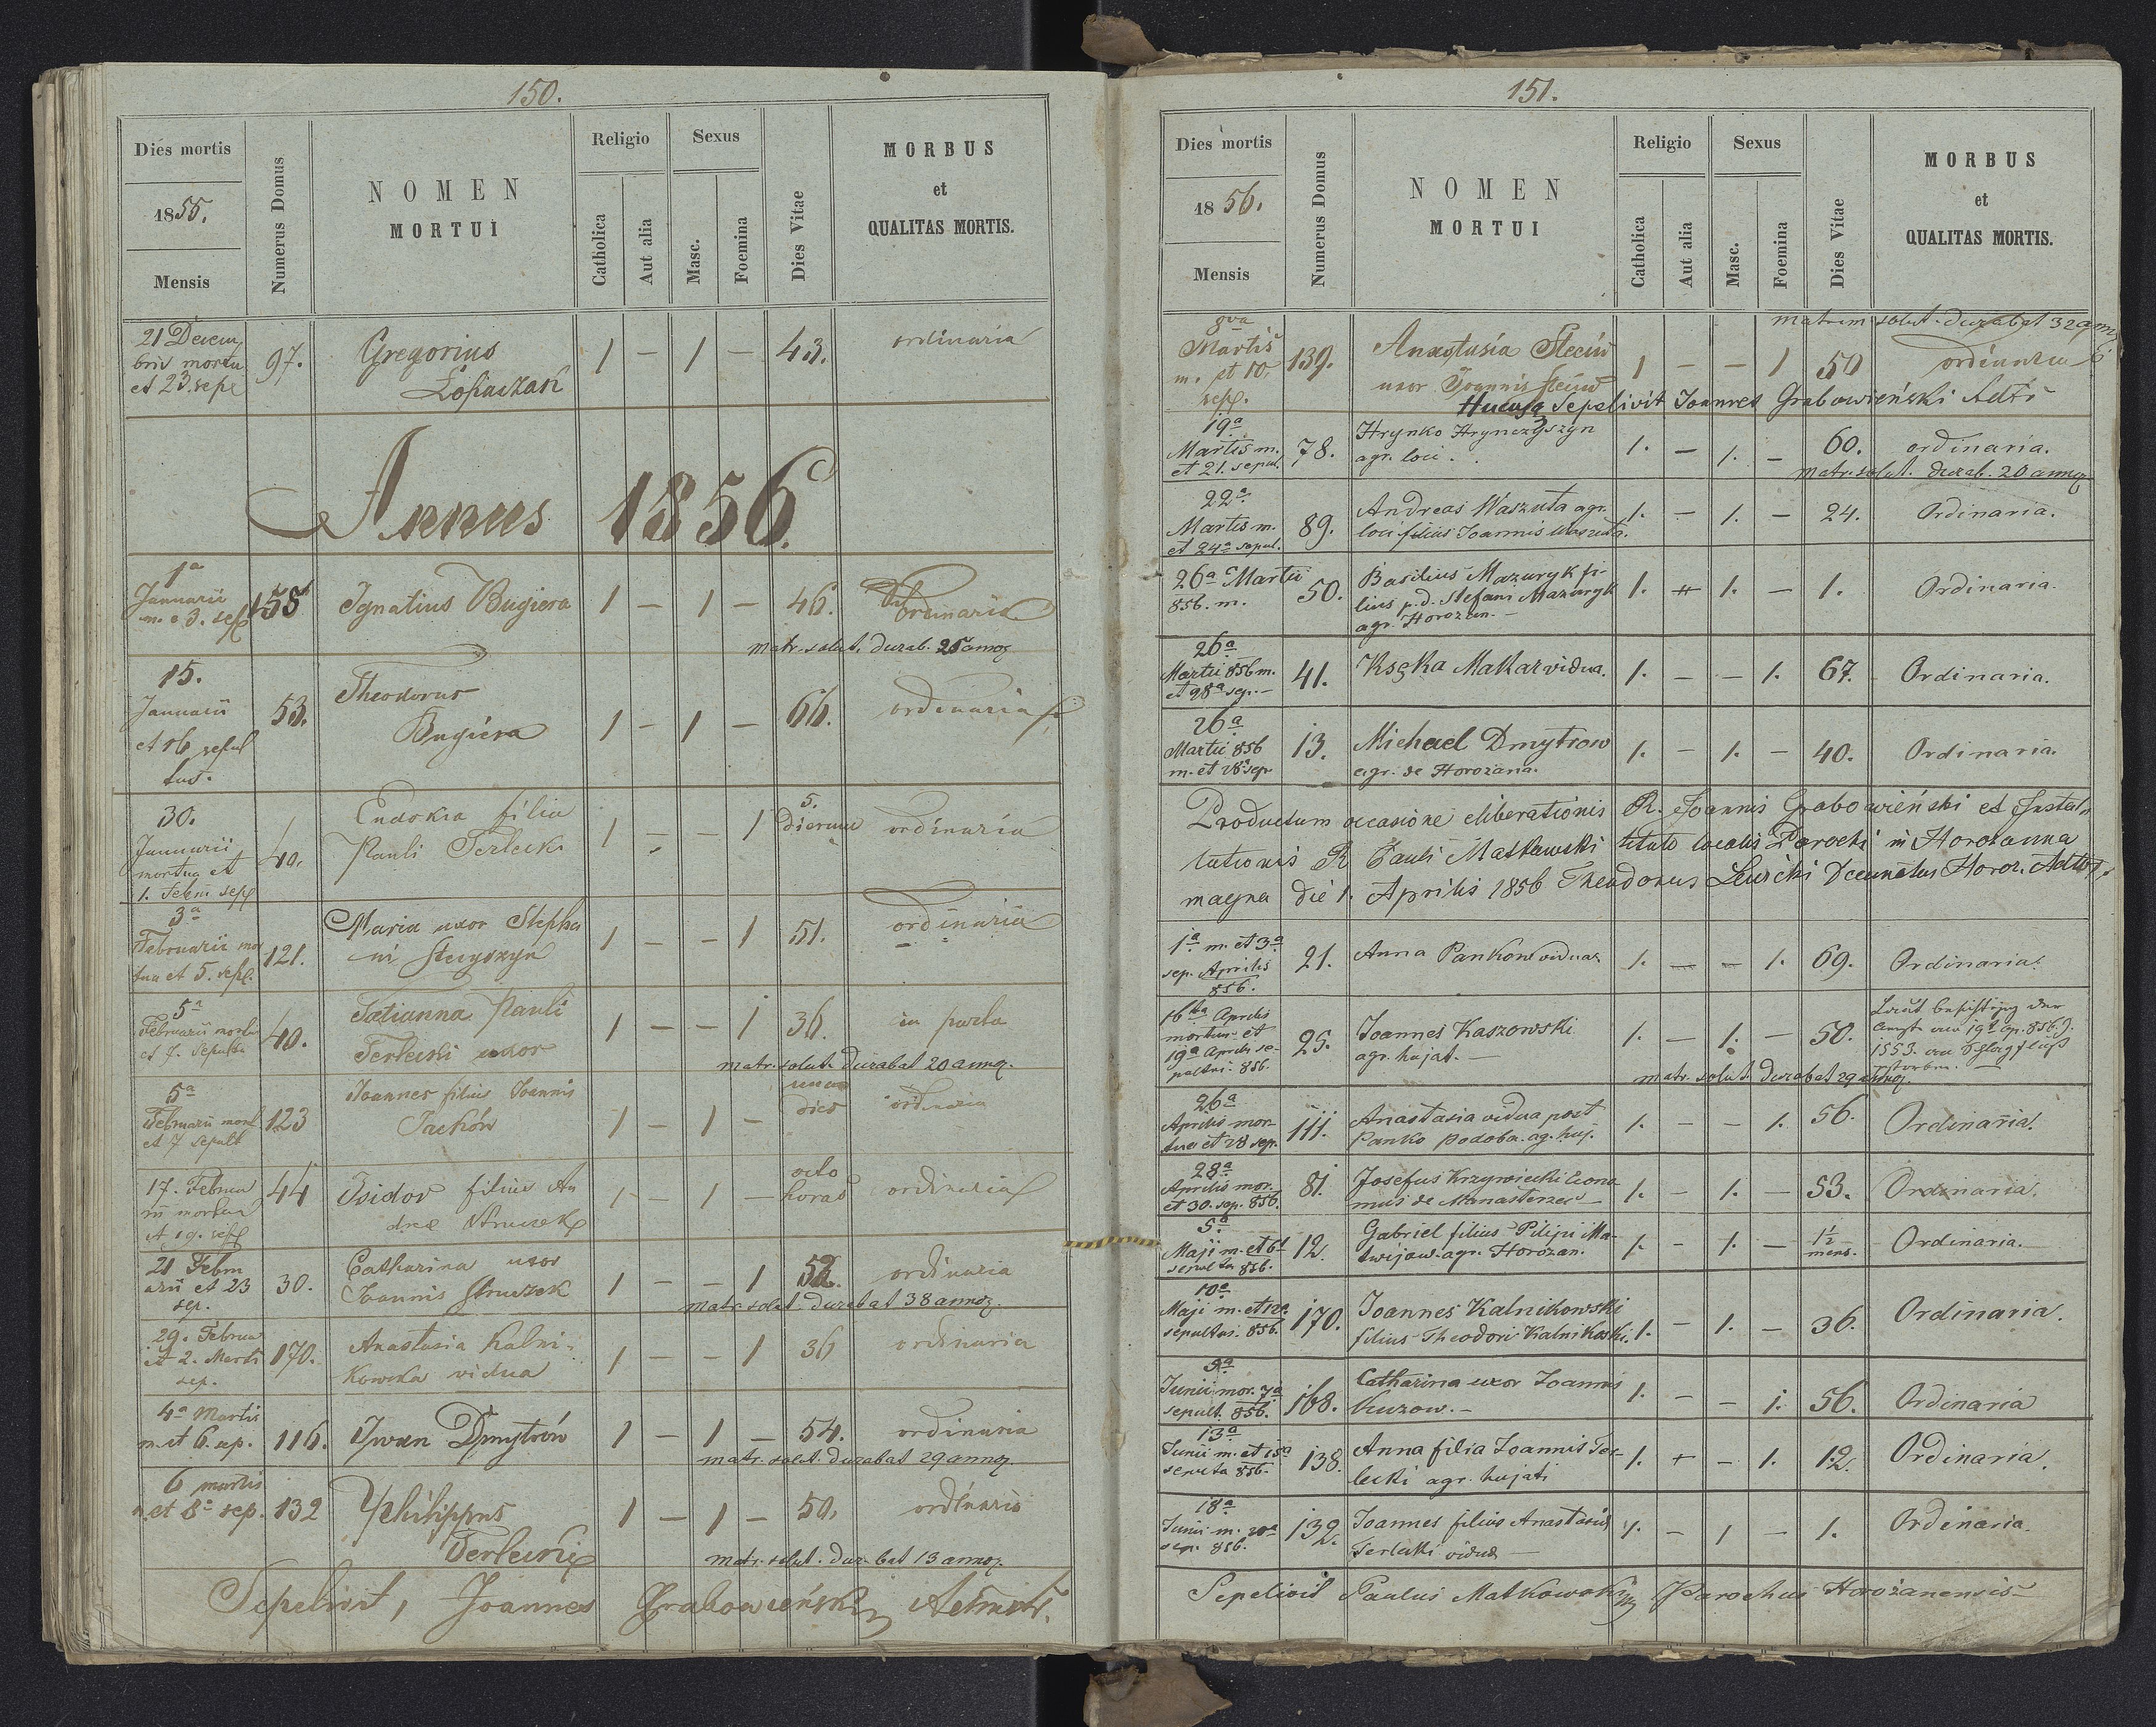 150.
Dies mortis
1855.
Mensis
Numerus Domus
NOMEN
MORTUI
Religio
Catholica
Aut alia
Sexus
Masc.
Foemina
Dies Vitae
MORBUS
et
QUALITAS MORTIS.
21 Decem
bris mortu
et 23. sepe
97.
Gregorius
Łopaczak
1 - 1 - 43.
ordinaria
Annus 1856.
1a
Januarii
m. 3. sep
155
Ignatius Bugiera
1 - 1 - 46.
Ordinaria
matr. solut. durab. 25 annoz
15.
Januarii
et 16 sepul
tus.
53.
Theodorus
Bugiera
1 - 1 - 66.
ordinaria
30.
Januarii
mortua et
1. Febru sep
40.
Eudokia filia
Pauli Terlecki
1 - - 1
5.
dierum
ordinaria
3a
Februarii mor
tua et 5. sep.
121.
Maria uxor Stepha
ni Stecyszyn
1 - - 1 51.
ordinaria
5a
Februarii mortu
et 7. Sepulta
40.
Tatianna Pauli
Terlecki uxor
1 - - 1 36.
in partu
matr. solut. durabat 20 annoz.
5a
Februarii mort.
et 7 sepult
123
Joannes filius Joannis
Jachów
1 - 1 -
unus
dies
ordinaria
17. Februa
rii mortuus
et 19. sep
44
Isidor filius An
dreae Struczek
1 - 1 -
octo
horas
ordinaria
21 Febru
arii et 23
sep.
30.
Catharina uxor
Joannis Struczek
1 - - 1 52.
ordinaria
matr. solut. durabat 38 annoz.
29. Februa
et 2. Marti
sep.
170.
Anastasia Kalni-
kowska vidua
1 - - 1 36
ordinaria
4a Martis
m. et 6. sep.
116.
Iwan Dmytrów
1 - 1 - 54.
ordinaria
matr. solut. durabat 29 annoz
6 martis
m. et 8a sep.
132
Philippus
Terlecki
1 - 1 - 50.
ordinaria
matr. solut. durabat 13 annoz.
Sepelivit, Joannes Grabowieński Admstr.
151.
Dies mortis
1856.
Mensis
Numerus Domus
NOMEN
MORTUI
Religio
Catholica
Aut alia
Sexus
Masc.
Foemina
Dies Vitae
MORBUS
et
QUALITAS MORTIS.
matrim. solut. durabat 32 annoz
8va
Martis
m. et 10.
sep.
139.
Anastasia Steciw
uxor Joannis Steciw
1 - - 1 50
ordinaria
Hucusq Sepelivit Joannes Grabowieński Adtr
19a
Martis m.
et 21. sepul.
78.
Hrynko Hrynczyszyn
agr. loci.
1. - 1. - 60.
ordinaria.
matr. solut. durab. 20 annoz
22a
Martis m.
et 24a sepul.
89.
Andreas Waszuta agr.
loci filius Joannis Waszuta.
1. - 1. - 24.
Ordinaria.
26a Martii
856. m.
50.
Basilius Mazuryk fi-
lius p.d. Stefani Mazuryk
agr. Horozan.
1. + 1. - 1.
Ordinaria.
26a
Martii 856 m.
et 28a sep.
41.
Kseka Makar vidua.
1. - - 1. 67.
Ordinaria.
26a
Martii 856
m. et 28a sep
13.
Michael Dmytrow
agr. de Horozana.
1. - 1. - 40.
Ordinaria.
Productum occasione eliberationis R. Joannis Grabowieński et Instal-
lationis R Pauli Matkowski titulo localis Parochi in Horozanna
magna die 1. Aprilis 1856 Theodorus Leurcki Decunatus Horoz. Adtor
1a m. et 3a
sep. Aprilis
856.
21.
Anna Pankow vidua
1. - - 1. 69.
Ordinaria.
16ta Aprilis
mortuus et
19a Aprilis se-
pultus. 856.
25.
Joannes Kaszowski
agr. hujat.
1. - 1. - 50.
1553. an Schlagfluß
matr. solut. durabat 29 annoz.
26a
Aprilis mor-
tua et 28 sep.
111.
Anastasia vidua post
Panko Podoba. ag. huj.
1. - - 1. 56.
Ordinaria.
28a
Aprilis mor.
et 30. sep. 856.
81.
Josefus Krzywiecki econo
mus de Manasterzec
1. - 1. - 53.
Ordinaria.
5a
Maji m. et 6a
sepulta 856.
12.
Gabriel filius Pilipi Ma-
twijow. agr. Horozan.
1. - 1. - 1/2
mens.
Ordinaria.
10a
Maji m. et 12a
sepultus. 856.
170.
Joannes Kalnikowski
filius Theodori Kalnikoski.
1. - 1. - 36.
Ordinaria.
5a
Junii mor. 7a
sepult. 856.
168.
Catharina uxor Joannis
Kuzow.
1. - - 1. 56.
Ordinaria
13a
Junii m. et 15a
sepulta 856.
138.
Anna filia Joannis Ter-
lecki agr. hujati
1. + - 1. 12.
Ordinaria.
18a
Junii m. 20a
sep. 856.
132.
Joannes filius Anastasia
Terlecki vidua
1. - 1 - 1.
Ordinaria.
Sepelivit Paulus Matkowski Parochus Horożanensis